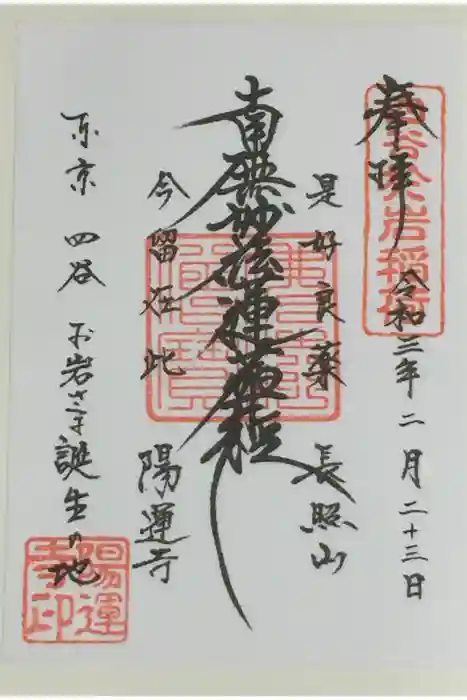 奉拝
令和三年二月二十三日
是好良薬
長照山
南無妙法蓮華経
今留在此
陽運寺
東京 四谷 お岩さま誕生の地
陽運
寺印